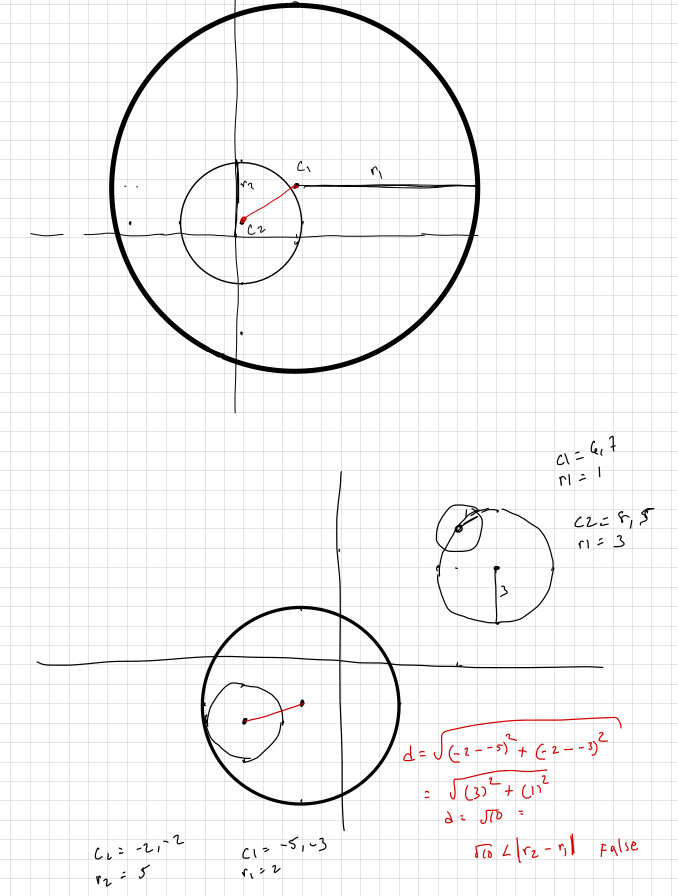 C1
r1
r2
C2
C1 = 6,7
r1 = 1
C2 = 8,5
r1 = 3
1
3
d = √(-2--5)² + (-2--3)²
= √(3)² + (1)²
d = √10 =
√10 < |r2 - r1| False
C2 = -2,-2
r2 = 5
C1 = -5,-3
r1 = 2